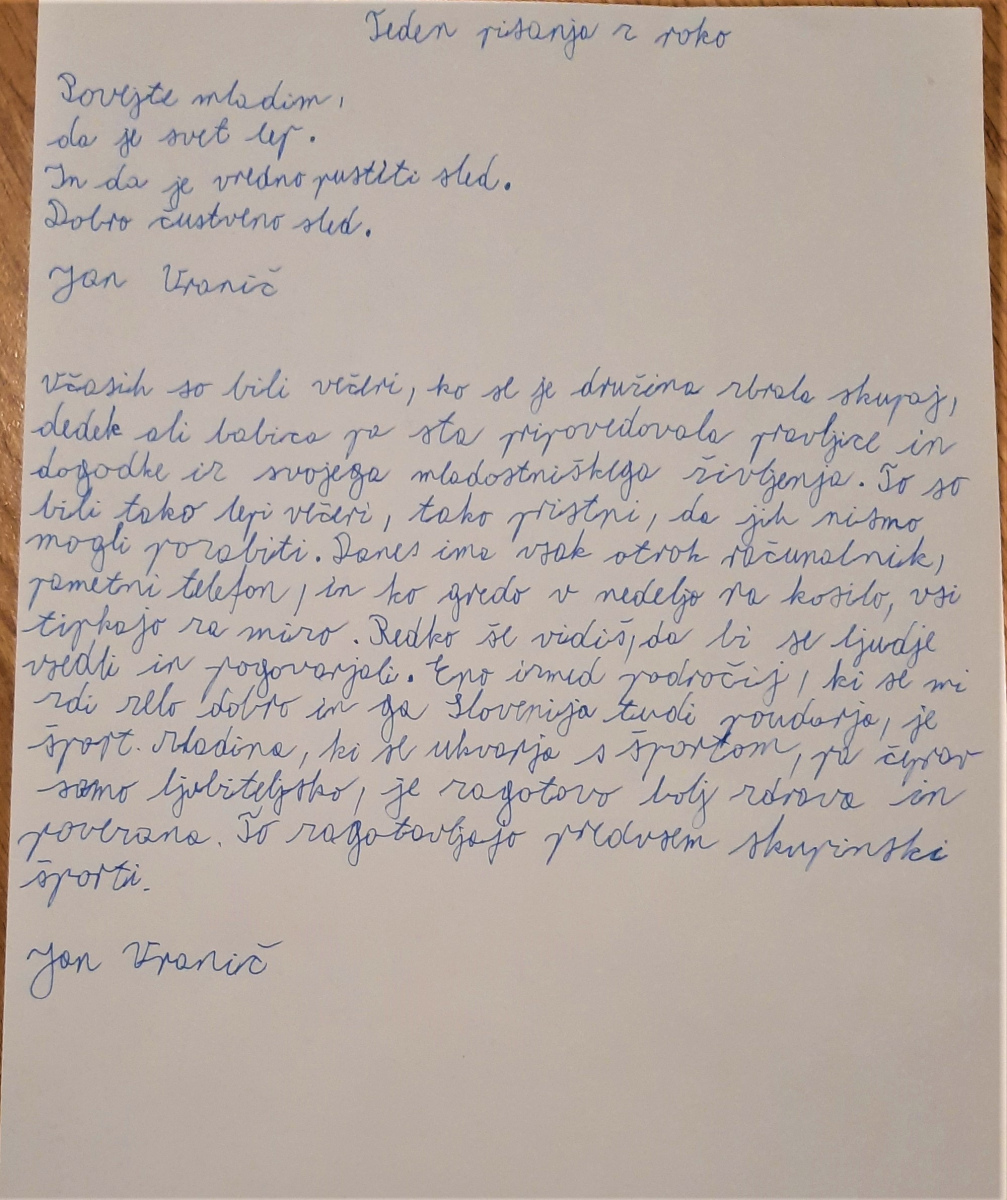 Teden pisanja z roko
Povejte mladim,
da je svet lep.
In da je vredno pustiti sled.
Dobro čustveno sled.
Jan Vranič
Včasih so bili večeri, ko se je družina zbrala skupaj,
dedek ali babica pa sta pripovedovala pravljice in
dogodke iz svojega mladostniškega življenja. To so
bili tako lepi večeri, tako pristni, da jih nismo
mogli pozabiti. Danes ima vsak otrok računalnik,
pametni telefon, in ko gredo v nedeljo na kosilo, vsi
tipkajo za mizo. Redko še vidiš, da bi se ljudje
vsedli in pogovarjali. Eno izmed področij, ki se mi
zdi zelo dobro in ga Slovenija tudi poudarja, je
šport. Mladina, ki se ukvarja s športom, pa čeprav
samo ljubiteljsko, je zagotovo bolj zdrava in
povezana. To zagotavljajo predvsem skupinski
športi.
Jan Vranič